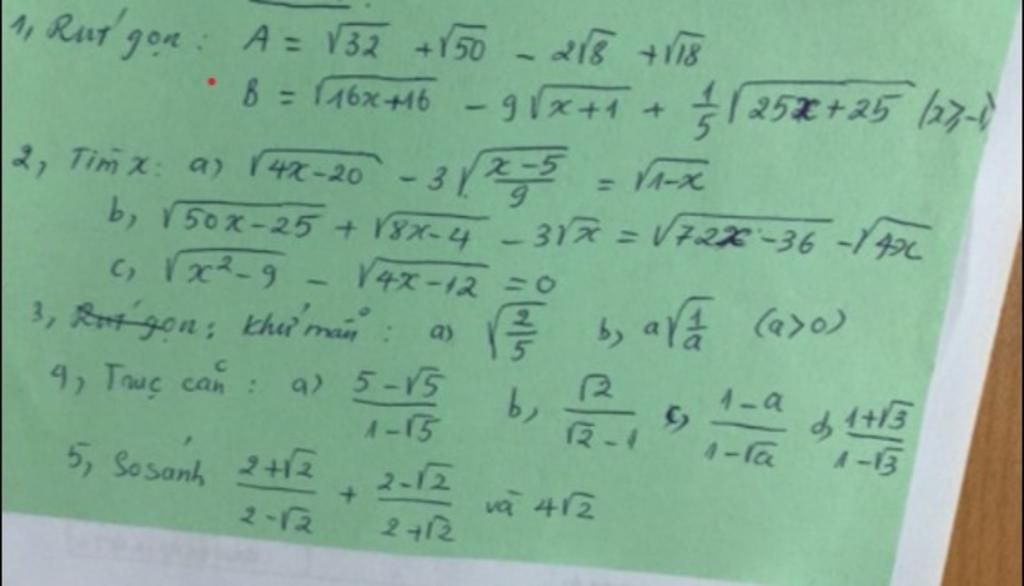 1, Rút gọn : A = √32 + √50 - 2√8 + √18
B = √(16x+16) - 9√(x+1) + 1/5 √(25x+25) (x≥-1)
2, Tìm x : a) √(4x-20) - 3√((x-5)/9) = √(1-x)
b, √(50x-25) + √(8x-4) - 3√x = √(72x-36) - √(4x)
c, √(x²-9) - √(4x-12) = 0
3, Rút gọn : Khử mẫu : a) √(2/5) b, a√(1/a) (a>0)
4, Trục căn : a) (5-√5)/(1-√5) b, √2/(√2-1) c, (1-a)/(1-√a) d, (1+√3)/(1-√3)
5, So sánh (2+√2)/(2-√2) + (2-√2)/(2+√2) và 4√2